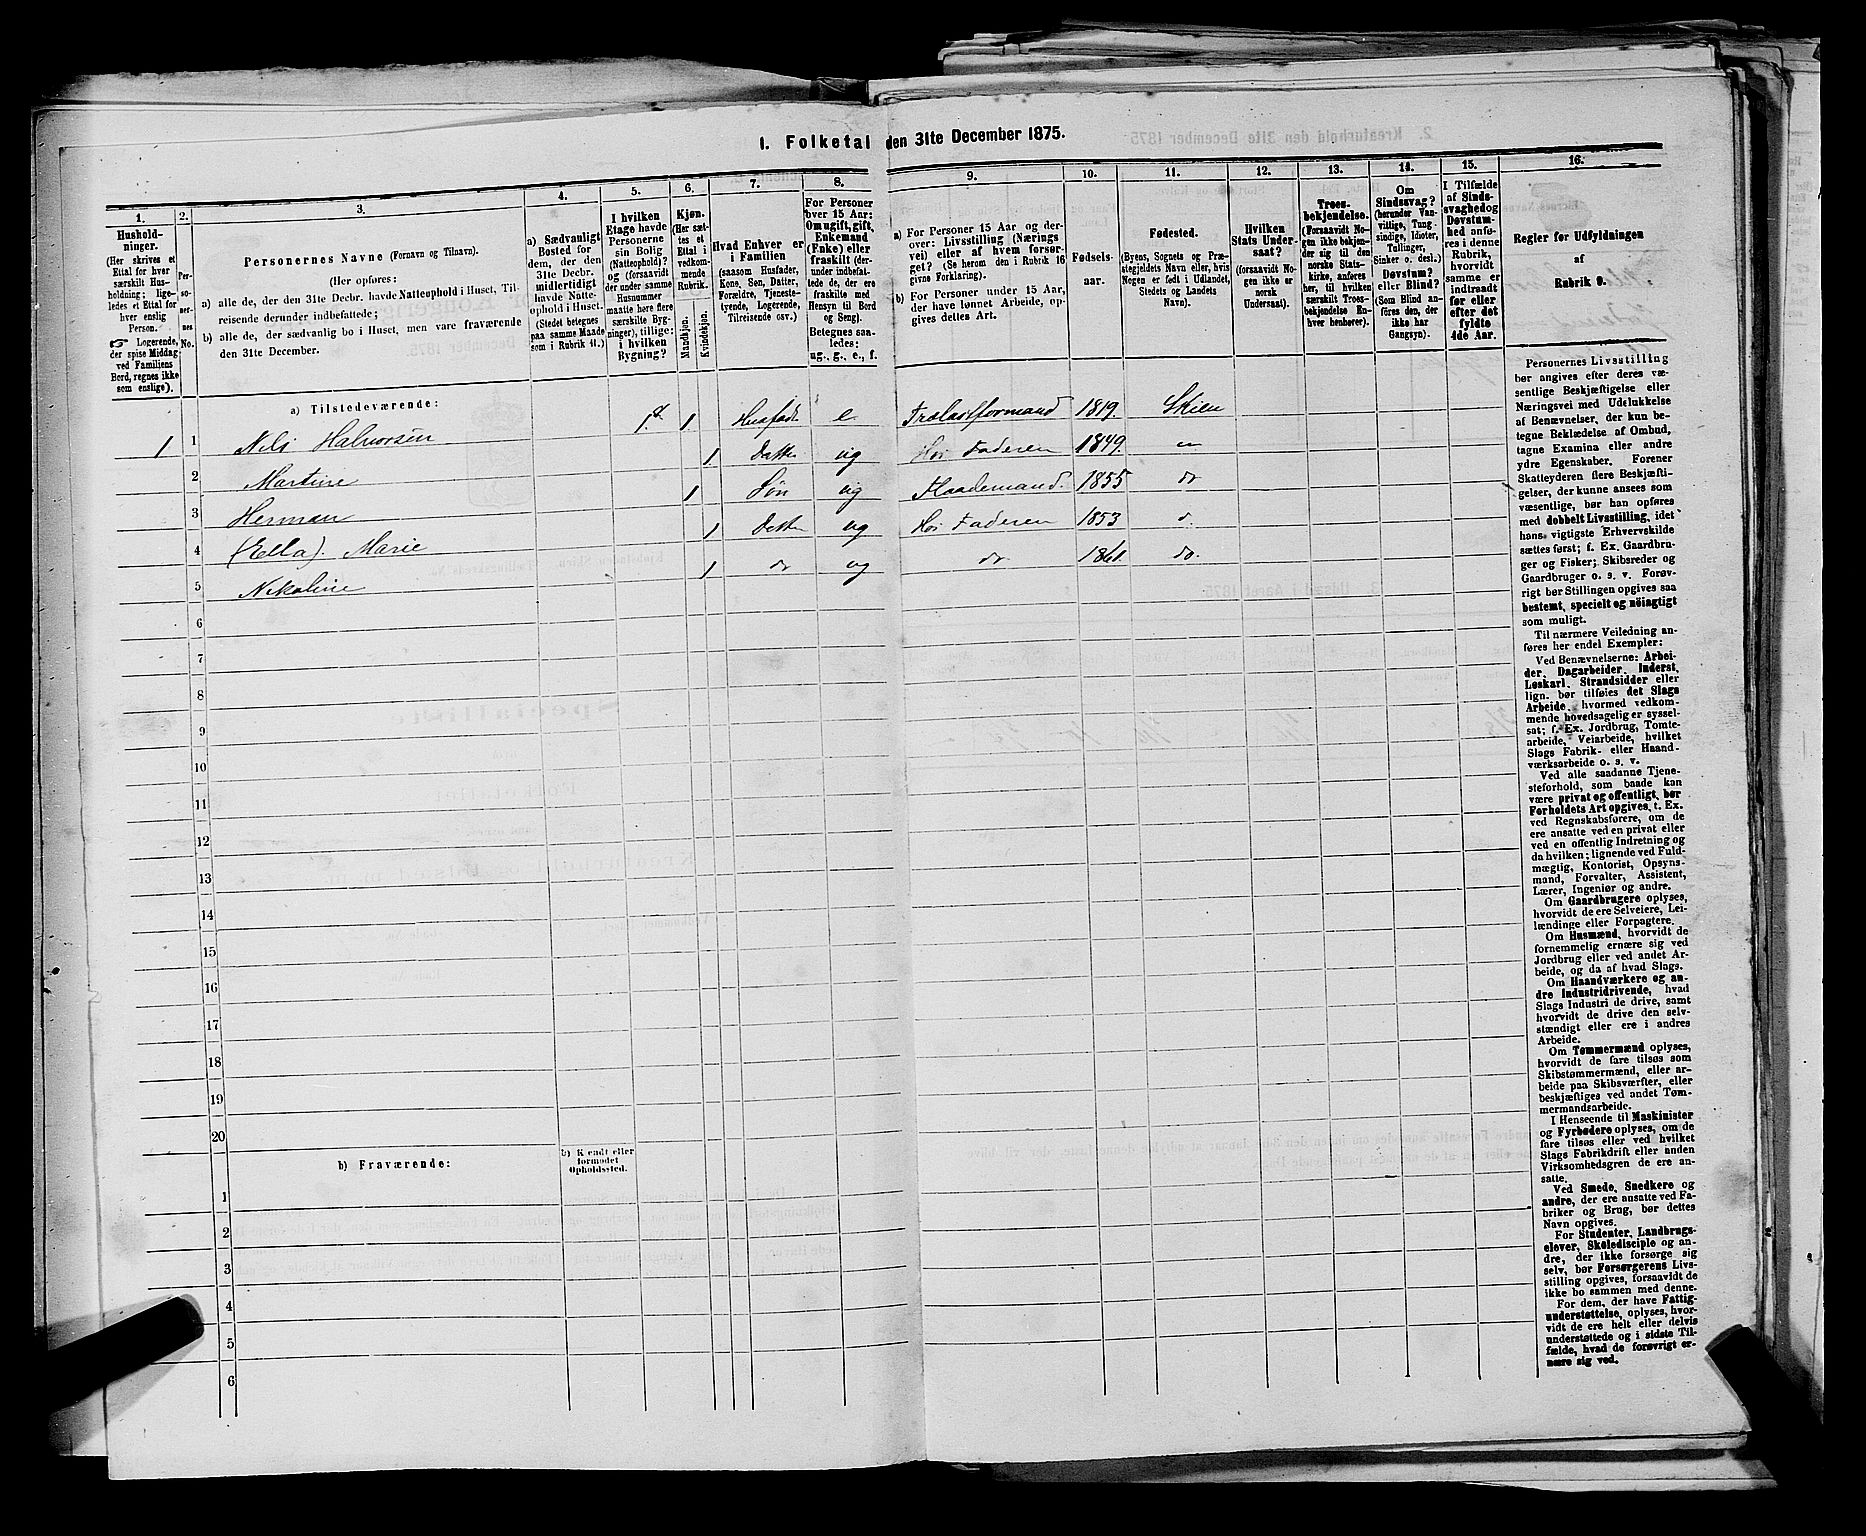 1. Folketal den 31te December 1875.
1.
Hushold-
ninger.
(Her skrives et
Ettal for hver
særskilt Hus-
holdning; lige-
ledes et Ettal for
hver enslig
Person.
☞ Logerende,
der spise Middag
ved Familiens
Bord, regnes ikke
som enslige).
2.
Per-
so-
ner-
nes
No.
3.
Personernes Navne (Fornavn og Tilnavn).
(Her opføres:
a) alle de, der den 31te Decbr. havde Natteophold i Huset, Til-
reisende derunder indbefattede;
b) alle de, der sædvanlig bo i Huset, men vare fraværende
den 31te December.
4.
a) Sædvanligt
Bosted for
dem, der den
31te Decbr.
midlertidigt
havde Natte-
ophold i Huset.
(Stedet betegnes
paa samme Maade
som i Rubrik 11.)
5.
I hvilken
Etage havde
Personerne
sin Bolig
(Natteophold)?
og (forsaavidt
der under samme
Husnummer
maatte høre flere
særskilte Byg-
ninger), tillige:
i hvilken
Bygning?
6.
Kjøn.
(Her sæt-
tes et
Ettal i
vedkom-
mende
Rubrik.
Mandkjøn.
Kvindekjøn.
7.
Hvad Enhver er
i Familien
(saasom Husfader,
Kone, Søn, Datter,
Forældre, Tjeneste-
tyende, Logerende,
Tilreisende osv.)
8.
For Personer
over 15 Aar:
Om ugift, gift,
Enkemand
(Enke) eller
fraskilt (der-
under indbefat-
tede de, der ere
fraskilte med
Hensyn til Bord
og Seng).
Betegnes saa-
ledes:
ug., g., e., f.
9.
a) For Personer 15 Aar og der-
over: Livsstilling (Nærings
vei) eller af hvem forsør-
get? (Se herom den i Rubrik 16
givne Forklaring).
b) For Personer under 15 Aar,
der have lønnet Arbeide, op-
gives dettes Art.
10.
Fødsels-
aar.
11.
Fødested.
(Byens, Sognets og Præ-
stegjeldets Navn eller, hvis
Nogen er født i Udlandet,
Stedets og Landets
Navn).
12.
Hvilken
Stats Under-
saat?
(forsaavidt No-
gen ikke er
norsk
Undersaat).
13.
Troes-
bekjendelse.
(Forsaavidt No-
gen ikke bekjen-
der sig til den
norske Stats-
kirke, anføres
her, til hvilket
særskilt Troes-
bekjendelse En-
hver henhører).
14.
Om
Sindssvag?
(herunder Van-
vittige, Tung-
sindige, Idioter,
Tullinger,
Sinker o. desl.)
Døvstum?
eller Blind?
(Som Blind an-
føres den, der
ikke har
Gangsyn).
15.
I Tilfælde
af Sinds-
svaghed og
Døvstum-
hed anfø-
res i denne
Rubrik,
hvorvidt
samme er
indtraadt
før eller
efter det
fyldte
4de Aar.
16.
Regler for Udfyldningen
af
Rubrik 9.
a) Tilstedeværende:
1 1 Nils Halvorsen 1. 1. Husfader e Fralastformand 1819. Skien
2 Martine 1. Datter ug Hos Faderen 1849.
3 Herman 1 Søn ug Flaademand. 1855 do
4 (Ella). Marie 1 Datter ug Hos Faderen 1853 d.
5 Nikoline 1 do ug do 1861. do.
6
7
8
9
10
11
12
13
14
15
16
17
18
19
20
b) Fraværende:
b) Kjendt eller
formodet
Opholdssted.
1
2
3
4
5
6
Personernes Livsstilling
bør angives efter deres væ-
sentlige Beskjæftigelse eller
Næringsvei med Udelukkelse
af Benævnelser, der kun be-
tegne Beklædelse af Ombud,
tagne Examina eller andre
ydre Egenskaber. Forener
Skatteyderen flere Beskjæfti-
gelser, der kunne ansees som
væsentlige, bør han opføres
med dobbelt Livsstilling, idet
hans vigtigste Erhvervskilde
sættes først; f. Ex. Gaardbru-
ger og Fisker; Skibsreder og
Gaardbruger o. s. v. Forøv-
rigt bør Stillingen opgives saa
bestemt, specielt og nøiagtigt
som muligt.
Til nærmere Veiledning an-
føres her endel Exempler:
Ved Benævnelserne: Arbei-
der, Dagarbeider, Inderst,
Løskarl, Strandsidder eller
lign. bør tilføies det Slags
Arbeide, hvormed vedkom-
mende hovedsagelig er syssel-
sat; f. Ex. Jordbrug, Tomte-
arbeide, Veiarbeide, hvilket
Slags Fabrik- eller Haand-
værksarbeide o. s. v.
Ved alle saadanne Tjene-
steforhold, som baade kan
være privat og offentligt, bør
Forholdets Art opgives, t. Ex.
ved Regnskabsførere, om de
ere ansatte ved en privat eller
ved en offentlig Indretning og
da hvilken; lignende ved Fuld-
mægtig, Kontorist, Opsyns-
mand, Forvalter, Assistent,
Lærer, Ingeniør og andre.
Om Gaardbrugere oplyses,
hvorvidt de ere Selveiere, Lei-
lændinge eller Forpagtere.
Om Husmænd, hvorvidt de
fornemmelig ernære sig ved
Jordbrug eller ved andet Ar-
beide, og da af hvad Slags.
Om Haandværkere og an-
dre Industridrivende, hvad
Slags Industri de drive, samt
hvorvidt de drive den selv-
stændigt eller ere i andres
Arbeide.
Om Tømmermænd oplyses,
hvorvidt de fare tilsøs som
Skibstømmermænd, eller ar-
beide paa Skibsværfter, eller
beskjæftiges ved andet Tøm-
mermandsarbeide.
I Henseende til Maskinister
og Fyrbødere oplyses, om de
fare tilsøs eller ved hvilket
Slags Fabrikdrift eller anden
Virksomhedsgren de ere an-
satte.
Ved Smede, Snedkere og
andre, der ere ansatte ved Fa-
briker og Brug, bør dettes
Navn opgives.
For Studenter, Landbrugs-
elever, Skoledisciple og an-
dre, der ikke forsørge sig
selv, bør Forsørgerens Livs-
stilling opgives, forsaavidt de
ikke bo sammen med denne.
For dem, der have Fattig-
understøttelse, oplyses, hvor-
vidt de ere helt eller delvis
understøttede og i sidste Til-
fælde, hvad de forøvrigt er-
nære sig ved.